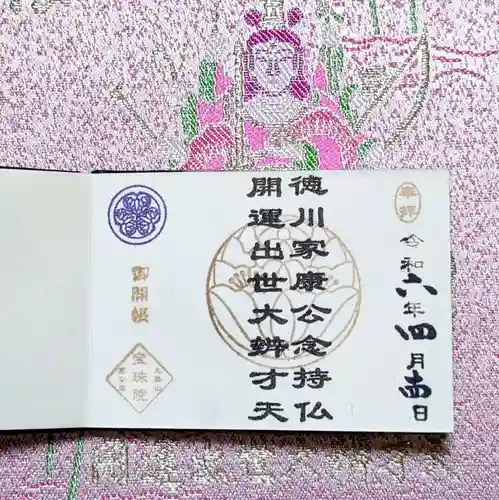 奉拝
令和六年四月十四日
徳川家康公念持仏
開運出世大辨才天
御開帳
宝珠院